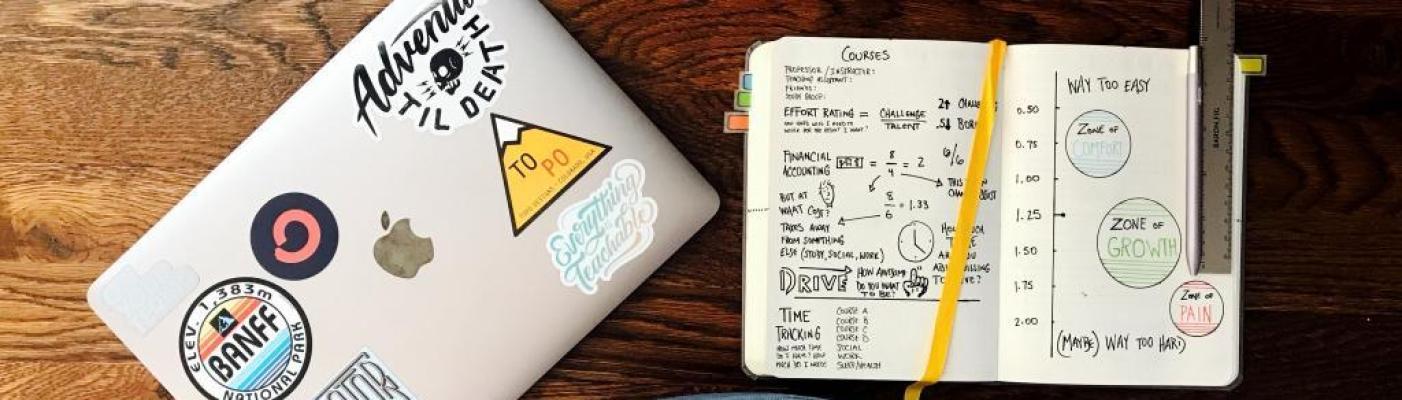 Adventu
TIL DEATH
TO PO
TOPO DESIGNS - COLORADO, USA
Everything
is
Teachable
ELEV. 1,383m
BANFF
NATIONAL PARK
COURSES
PROFESSOR / INSTRUCTOR:
TEACHING ASSISTANT:
FRIENDS:
STUDY GROUP:
EFFORT RATING = CHALLENGE
TALENT
2↑
.5↓
FINANCIAL
ACCOUNTING
= 8/4 = 2
6/6
BUT AT
WHAT COST?
8/6 = 1.33
TAKES AWAY
FROM SOMETHING
ELSE (STUDY, SOCIAL, WORK)
DRIVE
HOW AWESOME
DO YOU WANT
TO BE?
TIME
TRACKING
HOW MUCH TIME
DO I HAVE? HOW
MUCH DO I NEED?
COURSE A
COURSE B
COURSE C
COURSE D
SOCIAL
WORK
SLEEP/HEALTH
WAY TOO EASY
0.50
0.75
1.00
1.25
1.50
1.75
2.00
ZONE OF
COMFORT
ZONE OF
GROWTH
ZONE OF
PAIN
(MAYBE) WAY TOO HARD
BARON FIG